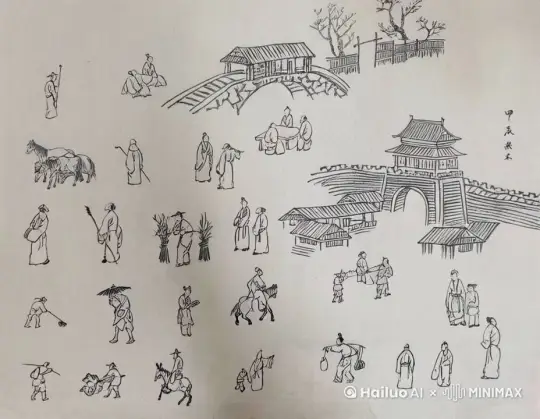 甲辰
Hailuo AI × MINIMAX